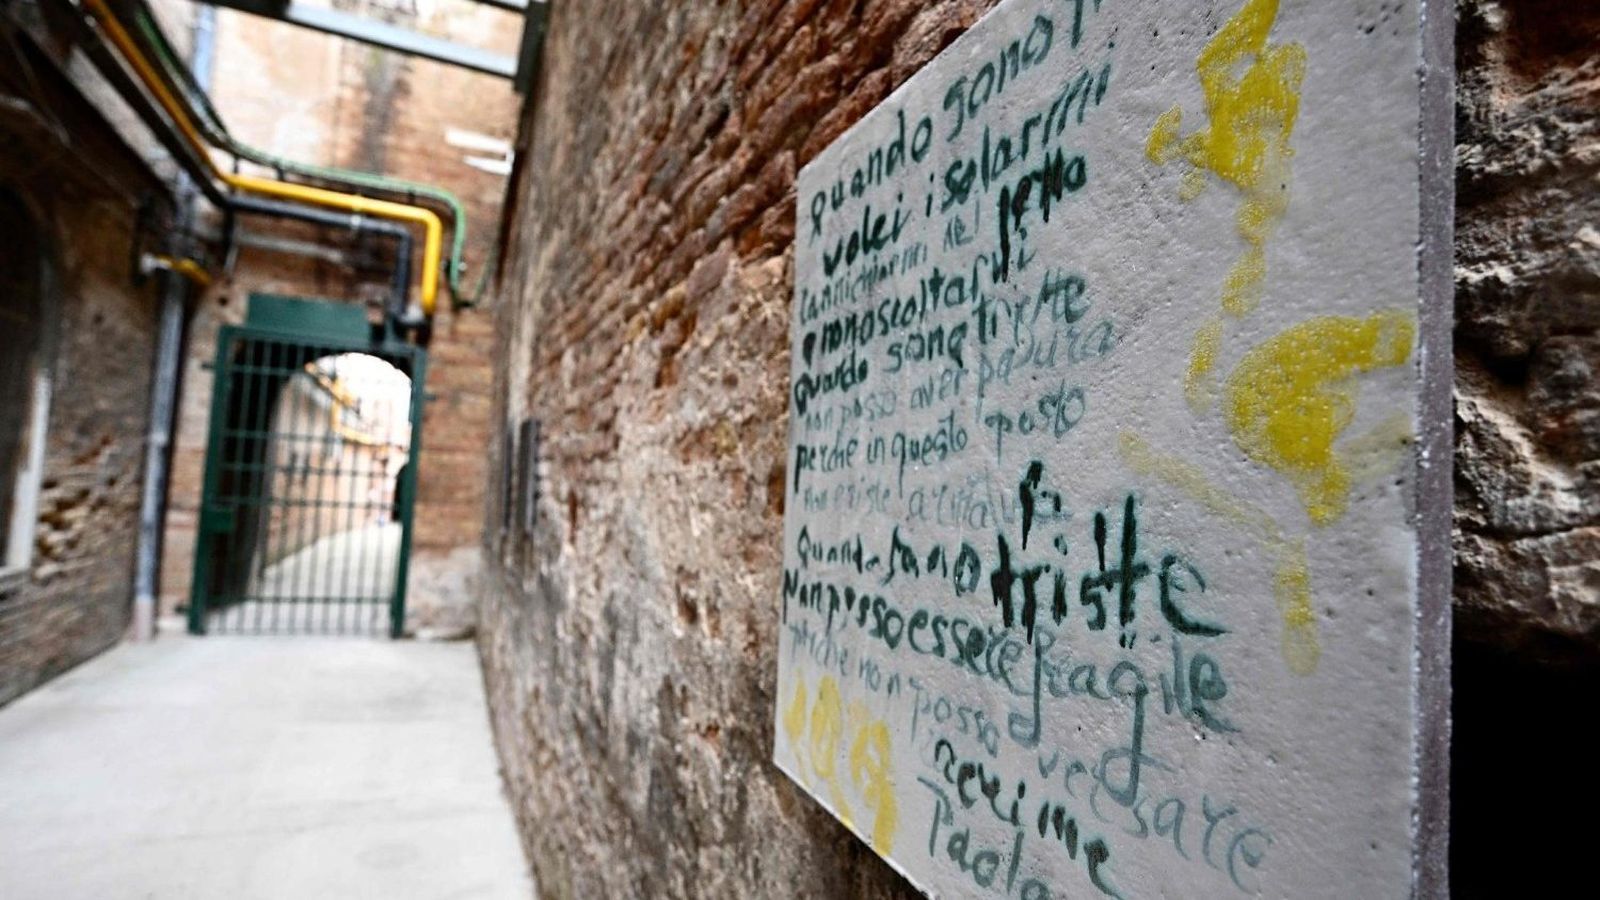 Quando sono
volei isolarmi
rannichiarmi nel letto
e non ascoltarmi
Quando sono triste
non posso aver paura
perche in questo posto
non esiste
Quando sono triste
Non posso essere fragile
perche non posso versare
Paola